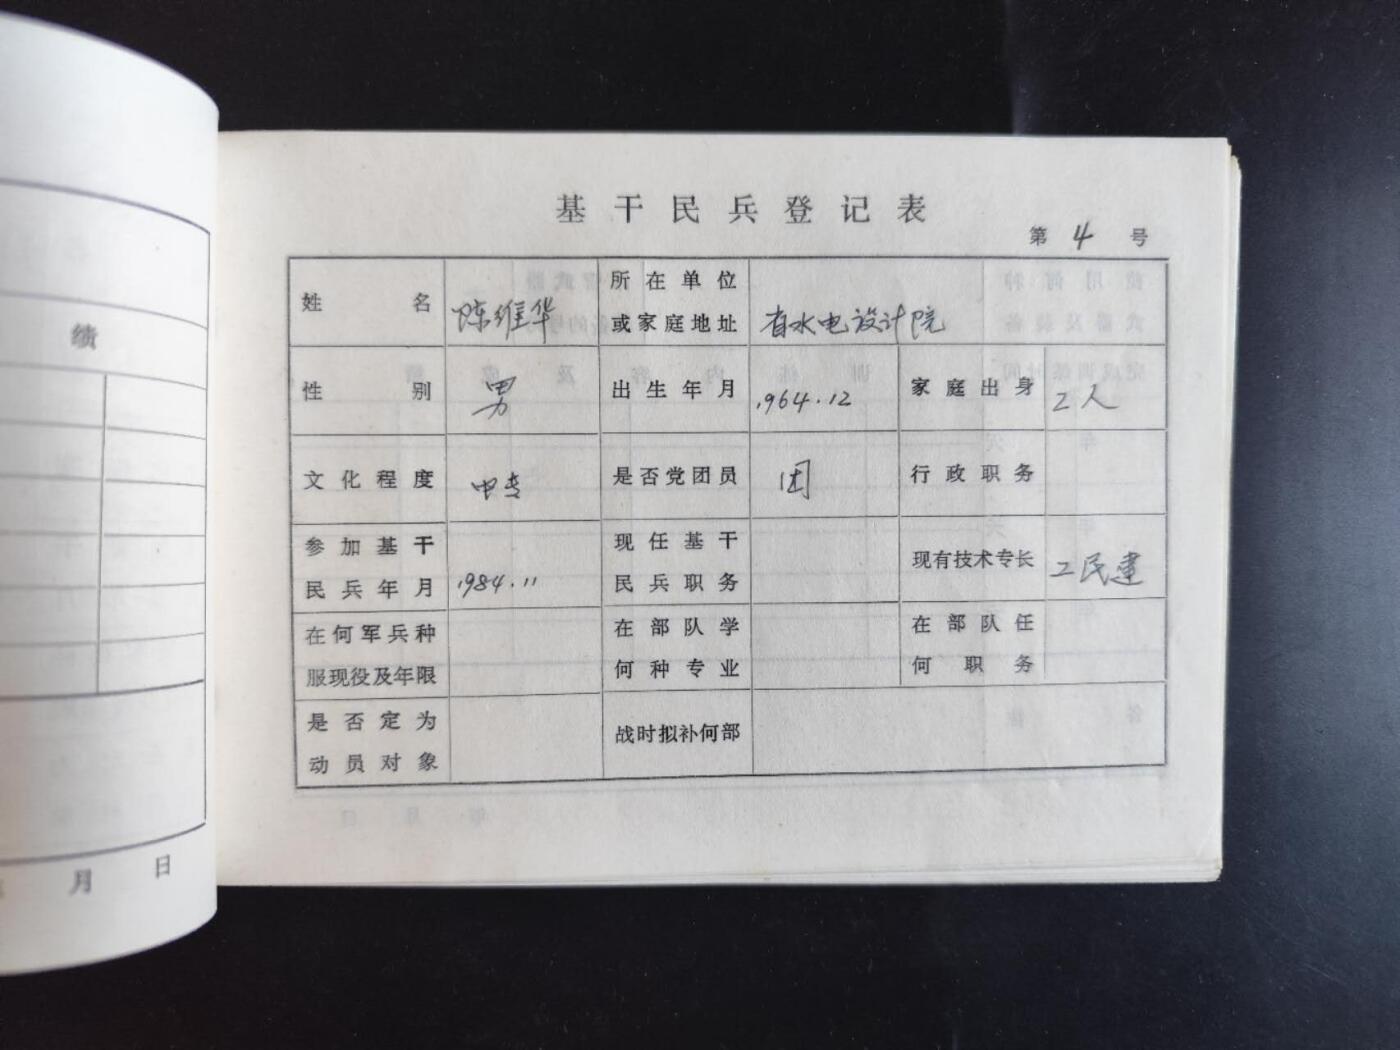 绩
月 日
基干民兵登记表
第 4 号
姓名 陈维华 所在单位或家庭地址 省水电设计院
性别 男 出生年月 1964.12 家庭出身 工人
文化程度 中专 是否党团员 团 行政职务
参加基干民兵年月 1984.11 现任基干民兵职务 现有技术专长 工民建
在何军兵种服现役及年限 在部队学何种专业 在部队任何职务
是否定为动员对象 战时拟补何部